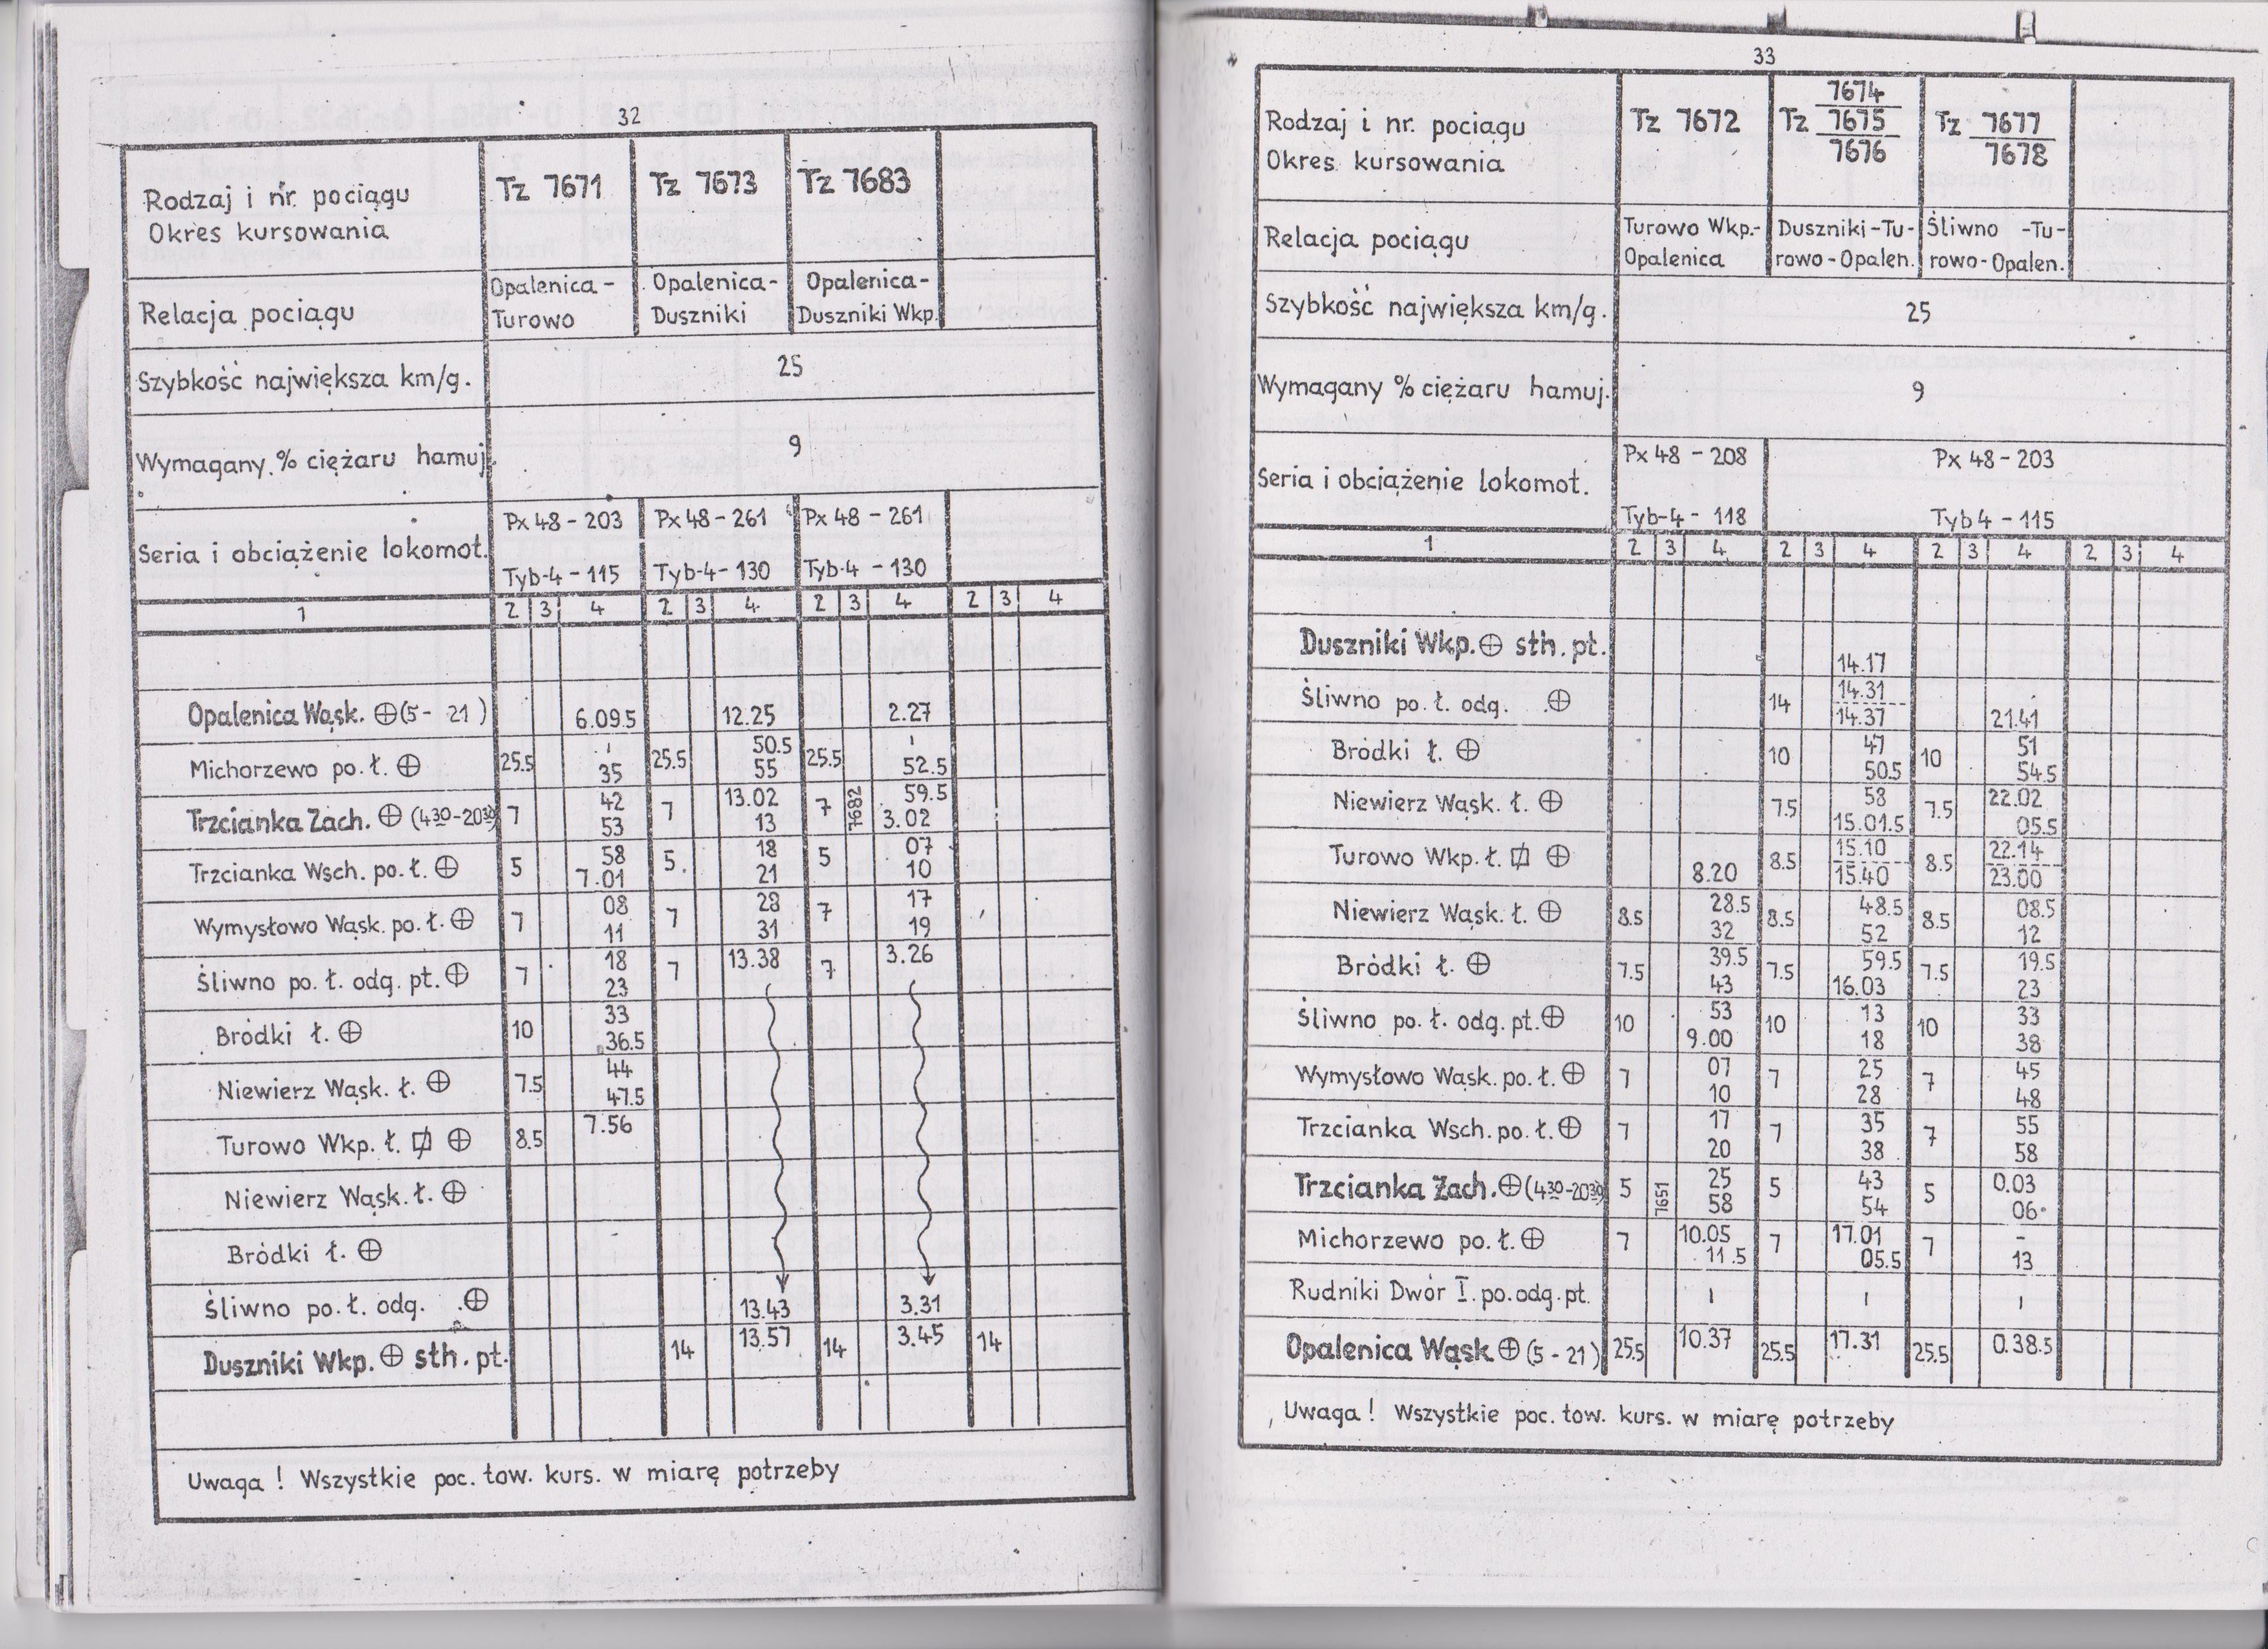 32
Rodzaj i nr. pociągu Tz 7671 Tz 7673 Tz 7683
Okres kursowania
Relacja pociągu Opalenica - Opalenica - Opalenica -
Turowo Duszniki Duszniki Wkp.
Szybkość największa km/g. 25
Wymagany % ciężaru hamuj. 9
Seria i obciążenie lokomot. Px 48 - 203 Px 48 - 261 Px 48 - 261
Tyb-4 - 115 Tyb-4 - 130 Tyb-4 - 130
1 2 3 4 2 3 4 2 3 4 2 3 4
Opalenica Wąsk. ⊕ (5 - 21) 6.09.5 12.25 2.27
Michorzewo po. ł. ⊕ 25.5 ı 35 25.5 50.5 55 25.5 ı 52.5
Trzcianka Zach. ⊕ (430-2030) 7 42 53 7 13.02 13 7 7682 59.5 3.02
Trzcianka Wsch. po. ł. ⊕ 5 58 7.01 5 18 21 5 07 10
Wymysłowo Wąsk. po. ł. ⊕ 7 08 11 7 28 31 7 17 19
Śliwno po. ł. odg. pt. ⊕ 7 18 23 7 13.38 7 3.26
Bródki ł. ⊕ 10 33 36.5
Niewierz Wąsk. ł. ⊕ 7.5 44 47.5
Turowo Wkp. ł. ⊕ 8.5 7.56
Niewierz Wąsk. ł. ⊕
Bródki ł. ⊕
Śliwno po. ł. odg. ⊕ 13.43 3.31
Duszniki Wkp. ⊕ sth. pt. 14 13.57 14 3.45 14
Uwaga ! Wszystkie poc. tow. kurs. w miarę potrzeby
33
Rodzaj i nr. pociągu Tz 7672 Tz 7674 7675 7676 Tz 7677 7678
Okres kursowania
Relacja pociągu Turowo Wkp.- Duszniki - Tu- Śliwno - Tu-
Opalenica rowo - Opalen. rowo - Opalen.
Szybkość największa km/g. 25
Wymagany % ciężaru hamuj. 9
Seria i obciążenie lokomot. Px 48 - 208 Px 48 - 203
Tyb-4 - 118 Tyb 4 - 115
1 2 3 4 2 3 4 2 3 4 2 3 4
Duszniki Wkp. ⊕ sth. pt. 14.17
Śliwno po. ł. odg. ⊕ 14 14.31 14.37 21.41
Bródki ł. ⊕ 10 47 50.5 10 51 54.5
Niewierz Wąsk. ł. ⊕ 7.5 58 15.01.5 7.5 22.02 05.5
Turowo Wkp. ł. ⊕ 8.20 8.5 15.10 15.40 8.5 22.14 23.00
Niewierz Wąsk. ł. ⊕ 8.5 28.5 32 8.5 48.5 52 8.5 08.5 12
Bródki ł. ⊕ 7.5 39.5 43 7.5 59.5 16.03 7.5 19.5 23
Śliwno po. ł. odg. pt. ⊕ 10 53 9.00 10 13 18 10 33 38
Wymysłowo Wąsk. po. ł. ⊕ 7 07 10 7 25 28 7 45 48
Trzcianka Wsch. po. ł. ⊕ 7 17 20 7 35 38 7 55 58
Trzcianka Zach. ⊕ (430-2030) 5 7651 25 58 5 43 54 5 0.03 06
Michorzewo po. ł. ⊕ 7 10.05 11.5 7 17.01 05.5 7 - 13
Rudniki Dwór I. po. odg. pt. ı ı ı
Opalenica Wąsk. ⊕ (5 - 21) 25.5 10.37 25.5 17.31 25.5 0.38.5
Uwaga ! Wszystkie poc. tow. kurs. w miarę potrzeby